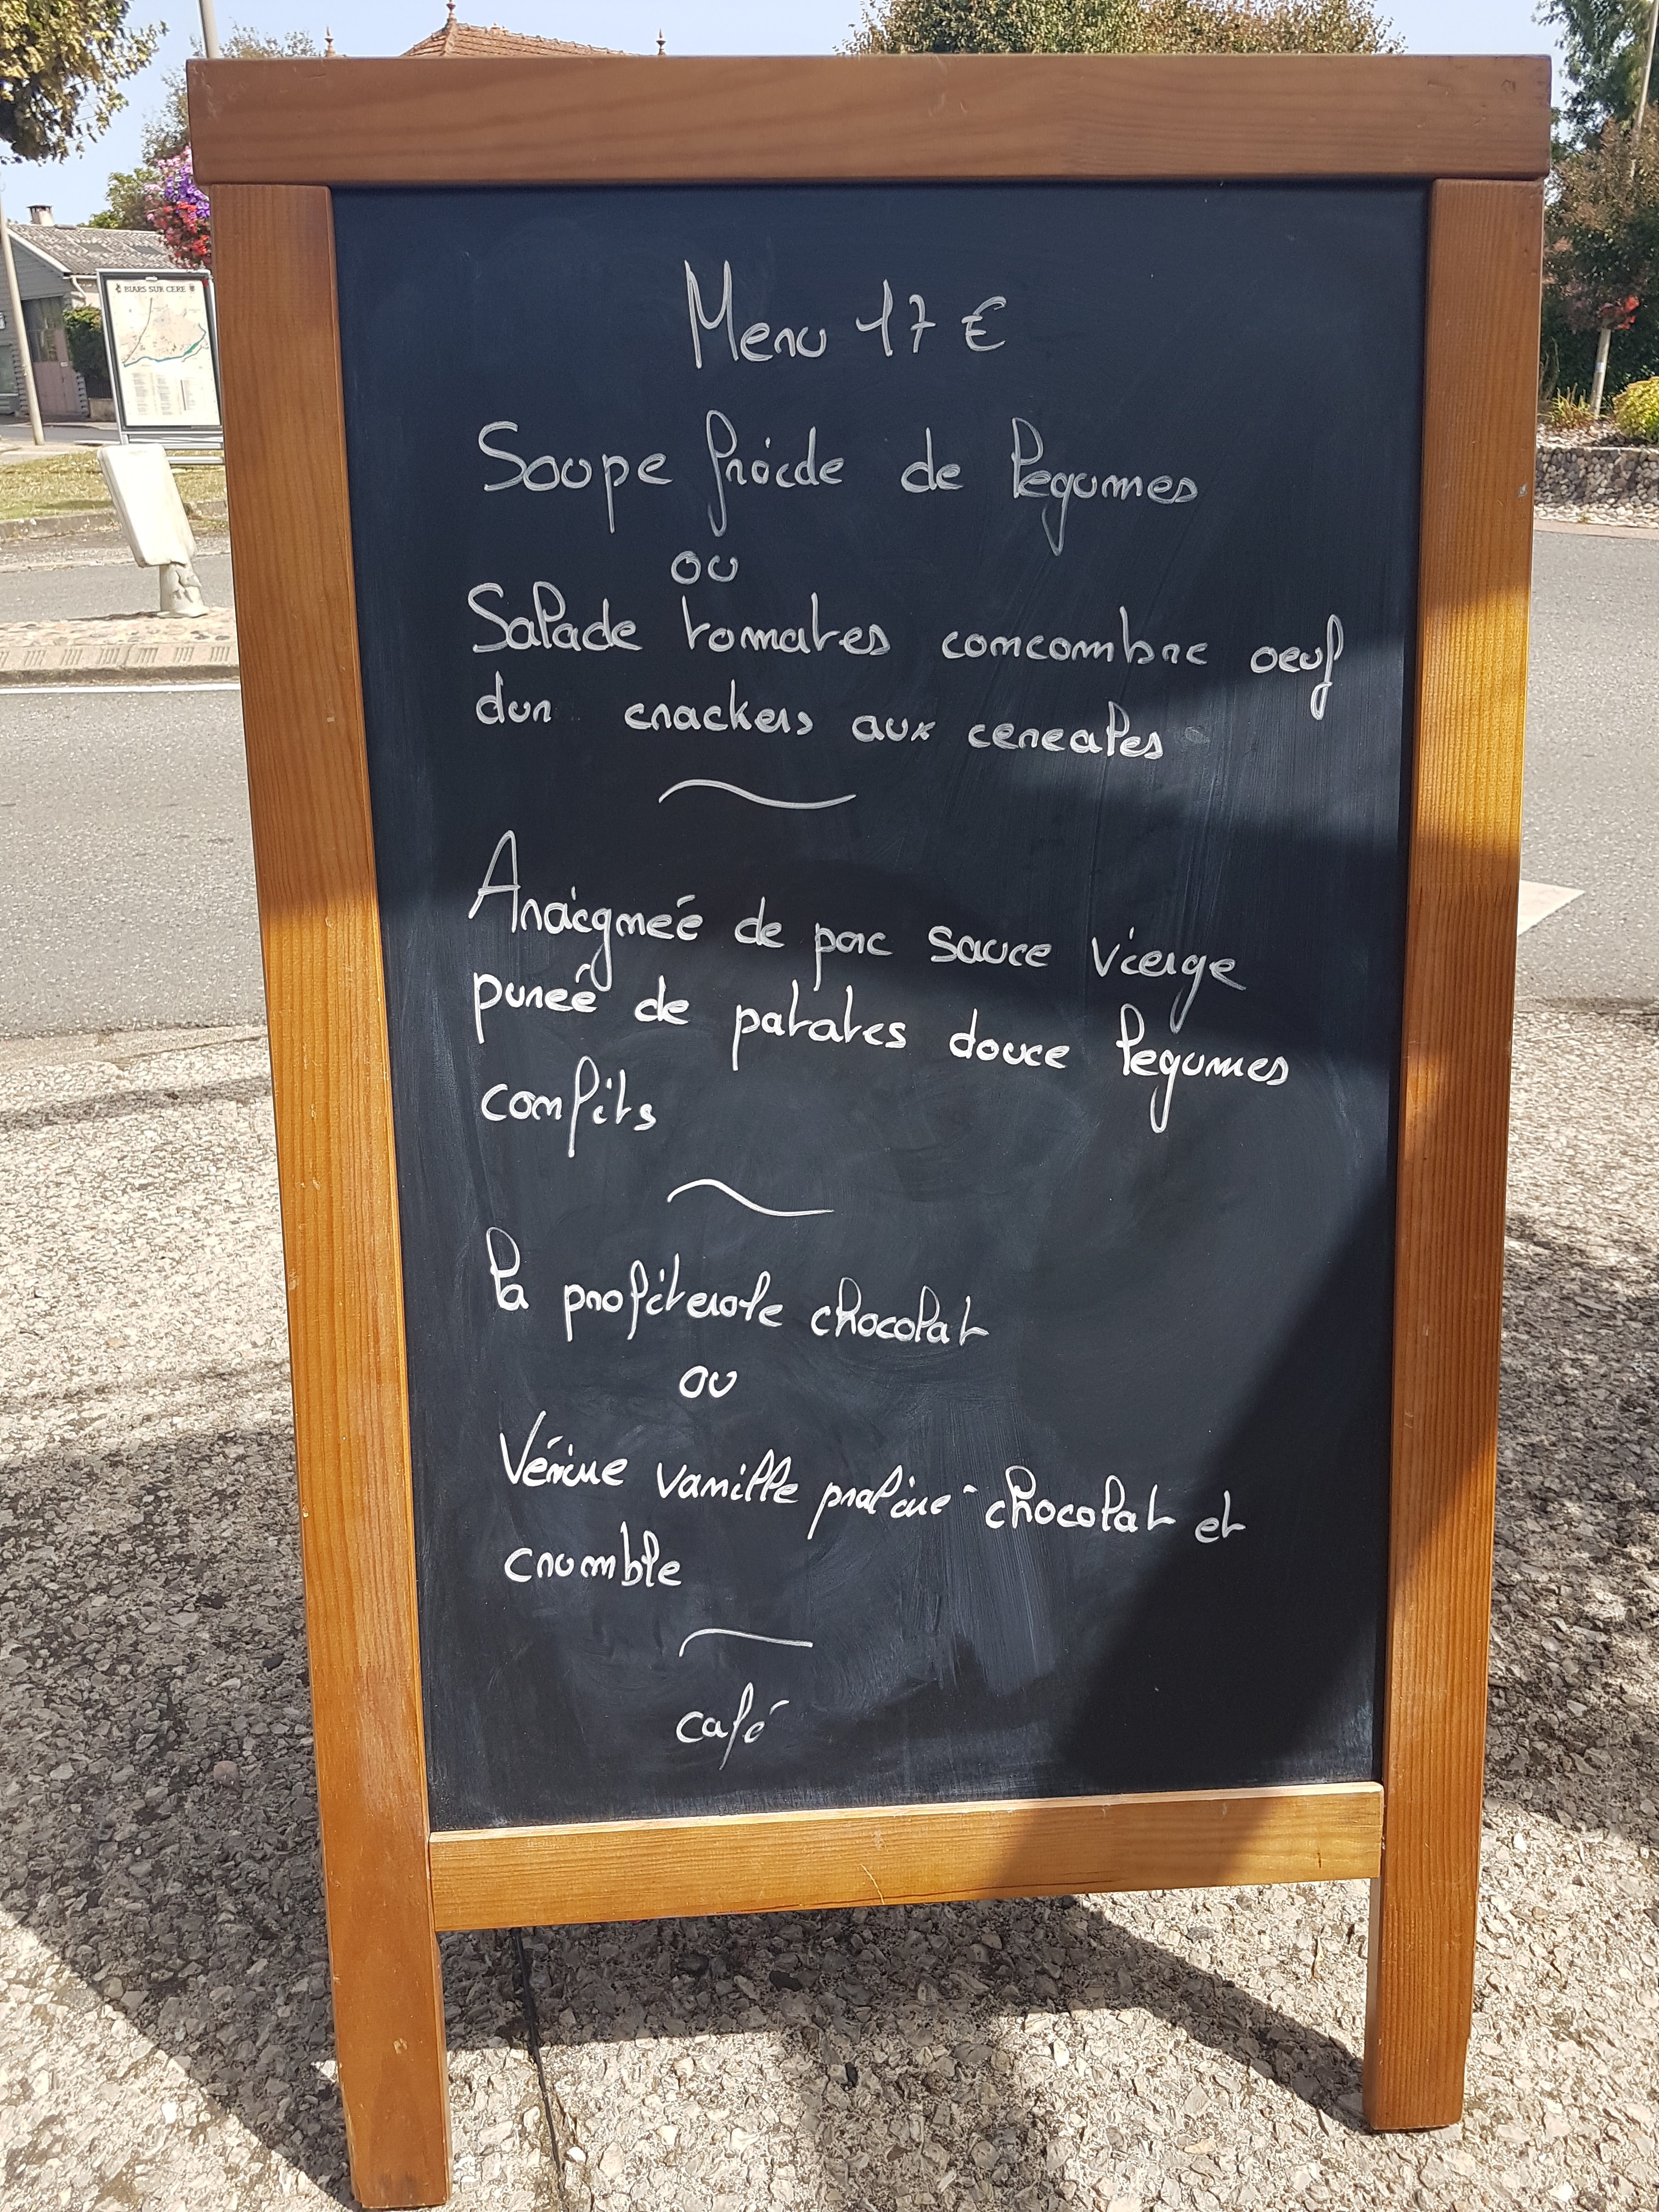 BIARS SUR CERE
Menu 17 €
Soupe froide de legumes
ou
Salade tomates concombre oeuf
dur crackers aux cereales
Araignée de porc sauce vierge
pureé de patates douce legumes
confits
la profiterole chocolat
ou
Vérine vanille praline chocolat et
crumble
café